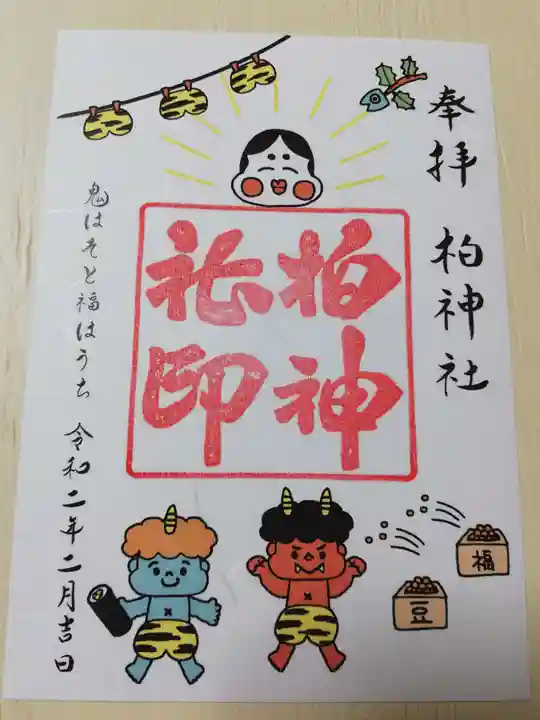 奉拝 柏神社
柏神
社印
鬼はそと福はうち 令和二年二月吉日
福
豆